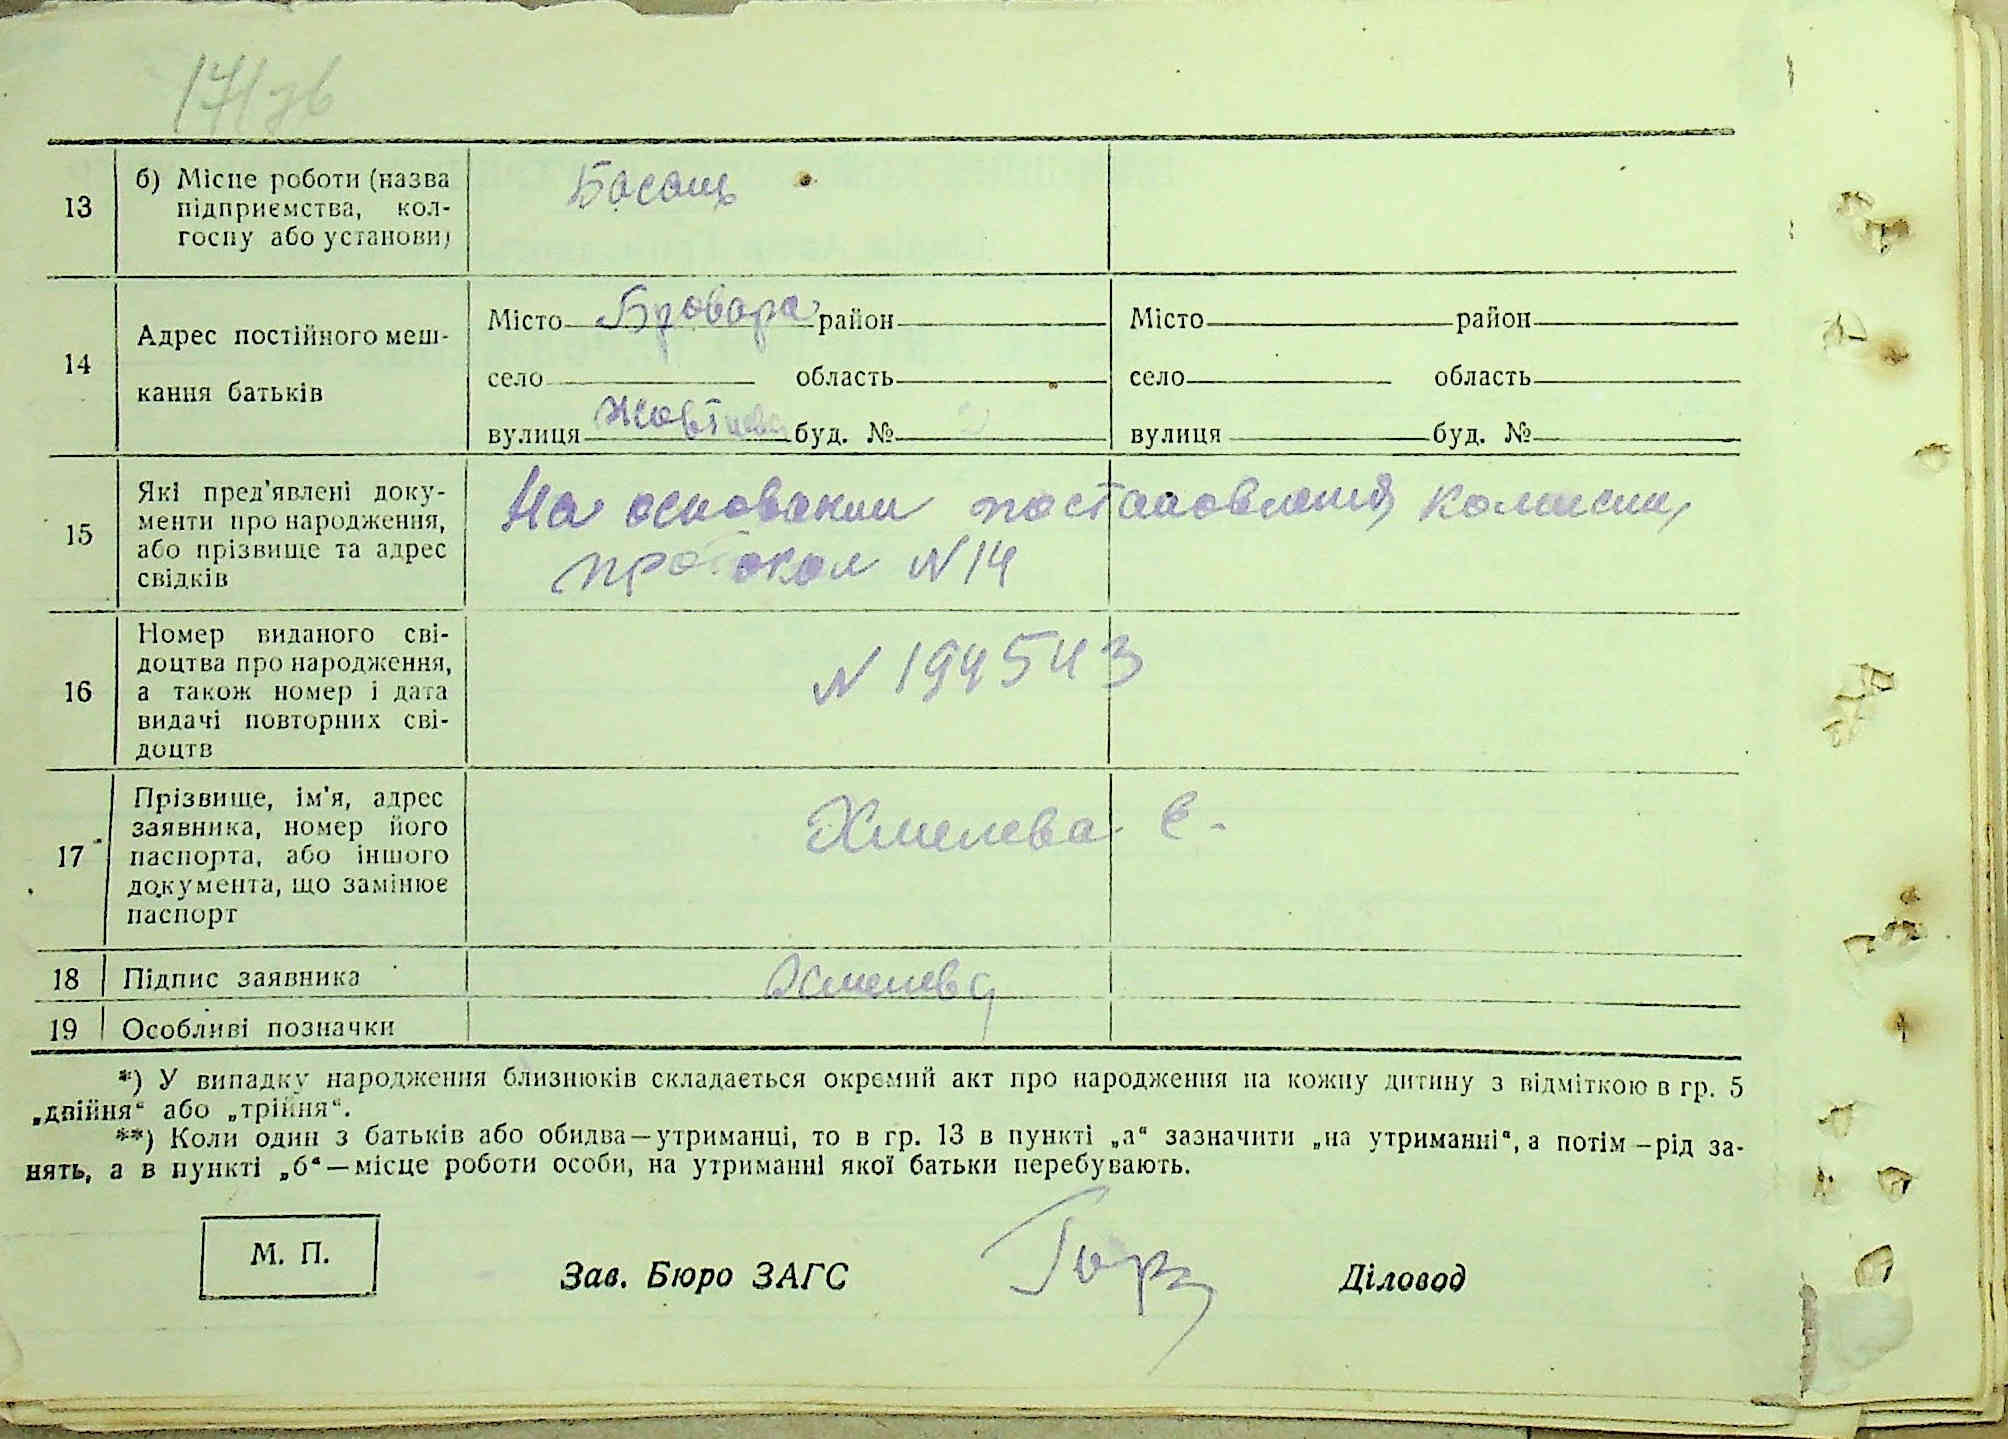 171 зв
13
б) Місце роботи (назва
підприємства, кол-
госпу або установи)
14
Адрес постійного меш-
кання батьків
Місто Бровара район
село область
вулиця Жовтнева буд. № 2
Місто район
село область
вулиця буд. №
15
Які пред'явлені доку-
менти про народження,
або прізвище та адрес
свідків
На основании постановления комиссии,
протокол N 14
16
Номер виданого сві-
доцтва про народження,
а також номер і дата
видачі повторних сві-
доцтв
N 194543
17
Прізвище, ім'я, адрес
заявника, номер його
паспорта, або іншого
документа, що замінює
паспорт
Хмелева Е.
18 Підпис заявника
Хмелева
19 Особливі позначки
*) У випадку народження близнюків складається окремий акт про народження на кожну дитину з відміткою в гр. 5
„двійня“ або „трійня“.
**) Коли один з батьків або обидва—утриманці, то в гр. 13 в пункті „а“ зазначити „на утриманні“, а потім—рід за-
нять, а в пункті „б“—місце роботи особи, на утриманні якої батьки перебувають.
М. П.
Зав. Бюро ЗАГС
Діловод